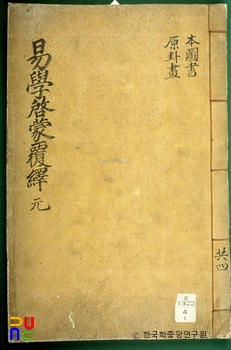 本圖書
原卦畫
易學啓蒙覆繹 元
共四
1322
4
1
ⓒ 한국학중앙연구원